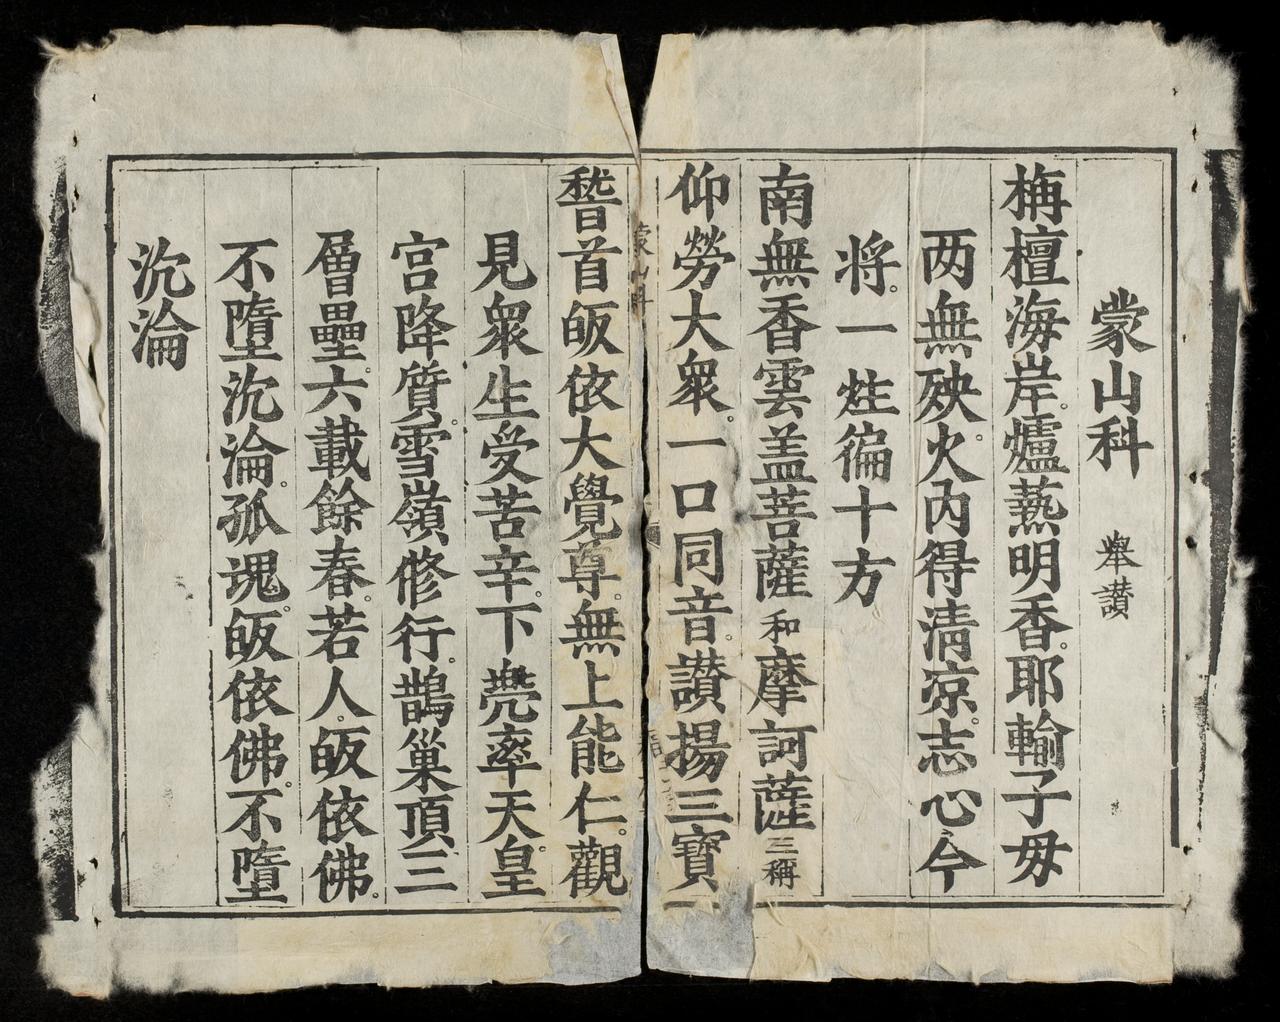 蒙山科 舉讃
栴檀海岸。爐爇明香。耶輸子母
两無殃。火内得清凉。志心今
将。一炷徧十方
南無香雲盖菩薩和摩訶薩三稱
仰勞大衆。一口同音。讃揚三寶
蒙山科
稽首皈依大覺尊。無上能仁。觀
見衆生受苦辛。下兠率天皇
宫降質。雪嶺修行。鵲巢頂三
層壘。六載餘春。若人皈依佛。
不墮沉淪。孤魂。皈依佛。不墮
沉淪